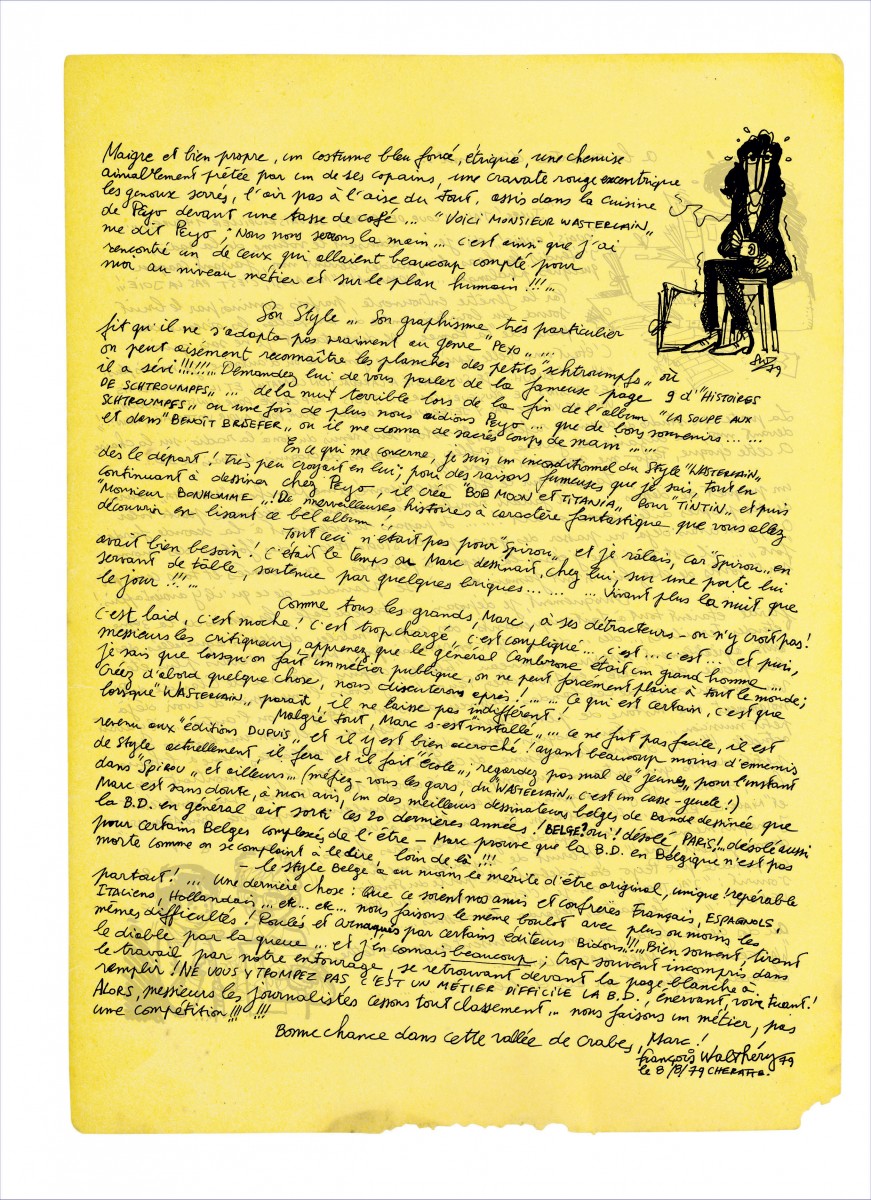 Maigre et bien propre, un costume bleu foncé, étriqué, une chemise
aimablement prêtée par un de ses copains, une cravate rouge excentrique
les genoux serrés, l'air pas à l'aise du tout, assis dans la cuisine
de Peyo devant une tasse de café ... "VOICI MONSIEUR WASTERLAIN"
me dit Peyo; Nous nous serrons la main... c'est ainsi que j'ai
rencontré un de ceux qui allaient beaucoup compté pour
moi au niveau métier et sur le plan humain !!!...
79
Son Style ... Son graphisme très particulier
fit qu'il ne s'adapta pas vraiment au genre "PEYO" ... ...
on peut aisément reconnaître les planches des petits "schtroumpfs" où
il a sévi !!!!!!... Demandez lui de vous parler de la fameuse page 9 d'"HISTOIRES
DE SCHTROUMPFS" ... de la nuit terrible lors de la fin de l'album "LA SOUPE AUX
SCHTROUMPFS" ou une fois de plus nous aidions Peyo ... que de bons souvenirs ... ...
et dans "BENOÎT BRISEFER" ou il me donna de sacrés coups de main ... ...
En ce qui me concerne, je suis un inconditionnel du Style "WASTERLAIN"
dès le départ ! très peu croyait en lui; pour des raisons fumeuses que je sais, tout en
continuant à dessiner chez Peyo, il créa "BOB MOON et TITANIA" pour TINTIN et puis
"Monsieur BONHOMME" ! De merveilleuses histoires à caractère fantastique que vous allez
découvrir en lisant ce bel album !
Tout ceci n'était pas pour "Spirou" et je râlais, car "Spirou" en
avait bien besoin ! C'était le temps ou Marc dessinait, chez lui, sur une porte lui
servant de table, soutenue par quelques briques ... ... ... Vivant plus la nuit que
le jour !!! ...
Comme tous les grands, Marc, à ses détracteurs - on n'y croit pas !
C'est laid, c'est moche ! C'est trop chargé, c'est compliqué ... c'est ... c'est ... et puis,
messieurs les critiqueurs, apprenez que le général Cambronne était un grand homme ...
Je sais que lorsqu'on fait un métier publique, on ne peut forcément plaire à tout le monde;
Créez d'abord quelque chose, nous discuterons après ! ... ... Ce qui est certain, c'est que
lorsque "WASTERLAIN" paraît, il ne laisse pas indifférent !
Malgré tout, Marc s'est "installé" ... ce ne fut pas facile, il est
revenu aux "éditions DUPUIS" et il y est bien accroché ! ayant beaucoup moins d'ennemis
de style actuellement, il fera et il fait "école"; regardez pas mal de "jeunes" pour l'instant
dans "SPIROU" et ailleurs... (méfiez-vous les gars, du "WASTERLAIN" c'est un casse-gueule !)
Marc est sans doute, à mon avis, un des meilleurs dessinateurs belges de Bande dessinée que
la B.D. en général ait sorti ces 20 dernières années ! BELGE? oui ! désolé PARIS !... désolé aussi
pour certains Belges complexés de l'être - Marc prouve que la B.D. en Belgique n'est pas
morte comme on se complaint à le dire, loin de là !!!
- le style Belge a au moins le mérite d'être original, unique ! repérable
partout ! ... Une dernière chose : Que ce soient nos amis et confrères Français, ESPAGNOLS,
ITALIENS, Hollandais ... etc... etc... nous faisons le même boulot avec plus ou moins les
mêmes difficultés ! Roulés et arnaqués par certains éditeurs Bidons !!!... Bien souvent, tirant
le diable par la queue ... et j'en connais beaucoup; trop souvent incompris dans
le travail par notre entourage, se retrouvant devant la page blanche à
remplir ! NE VOUS Y TROMPEZ PAS, C'EST UN MÉTIER DIFFICILE LA B.D., Énervant, voire tuant !
ALORS, messieurs les journalistes cessons tout classement ... nous faisons un métier, pas
une compétition !!! !!!
Bonne chance dans cette vallée de Crabes, Marc !
François Walthéry 79
le 8/8/79 CHERATTE.